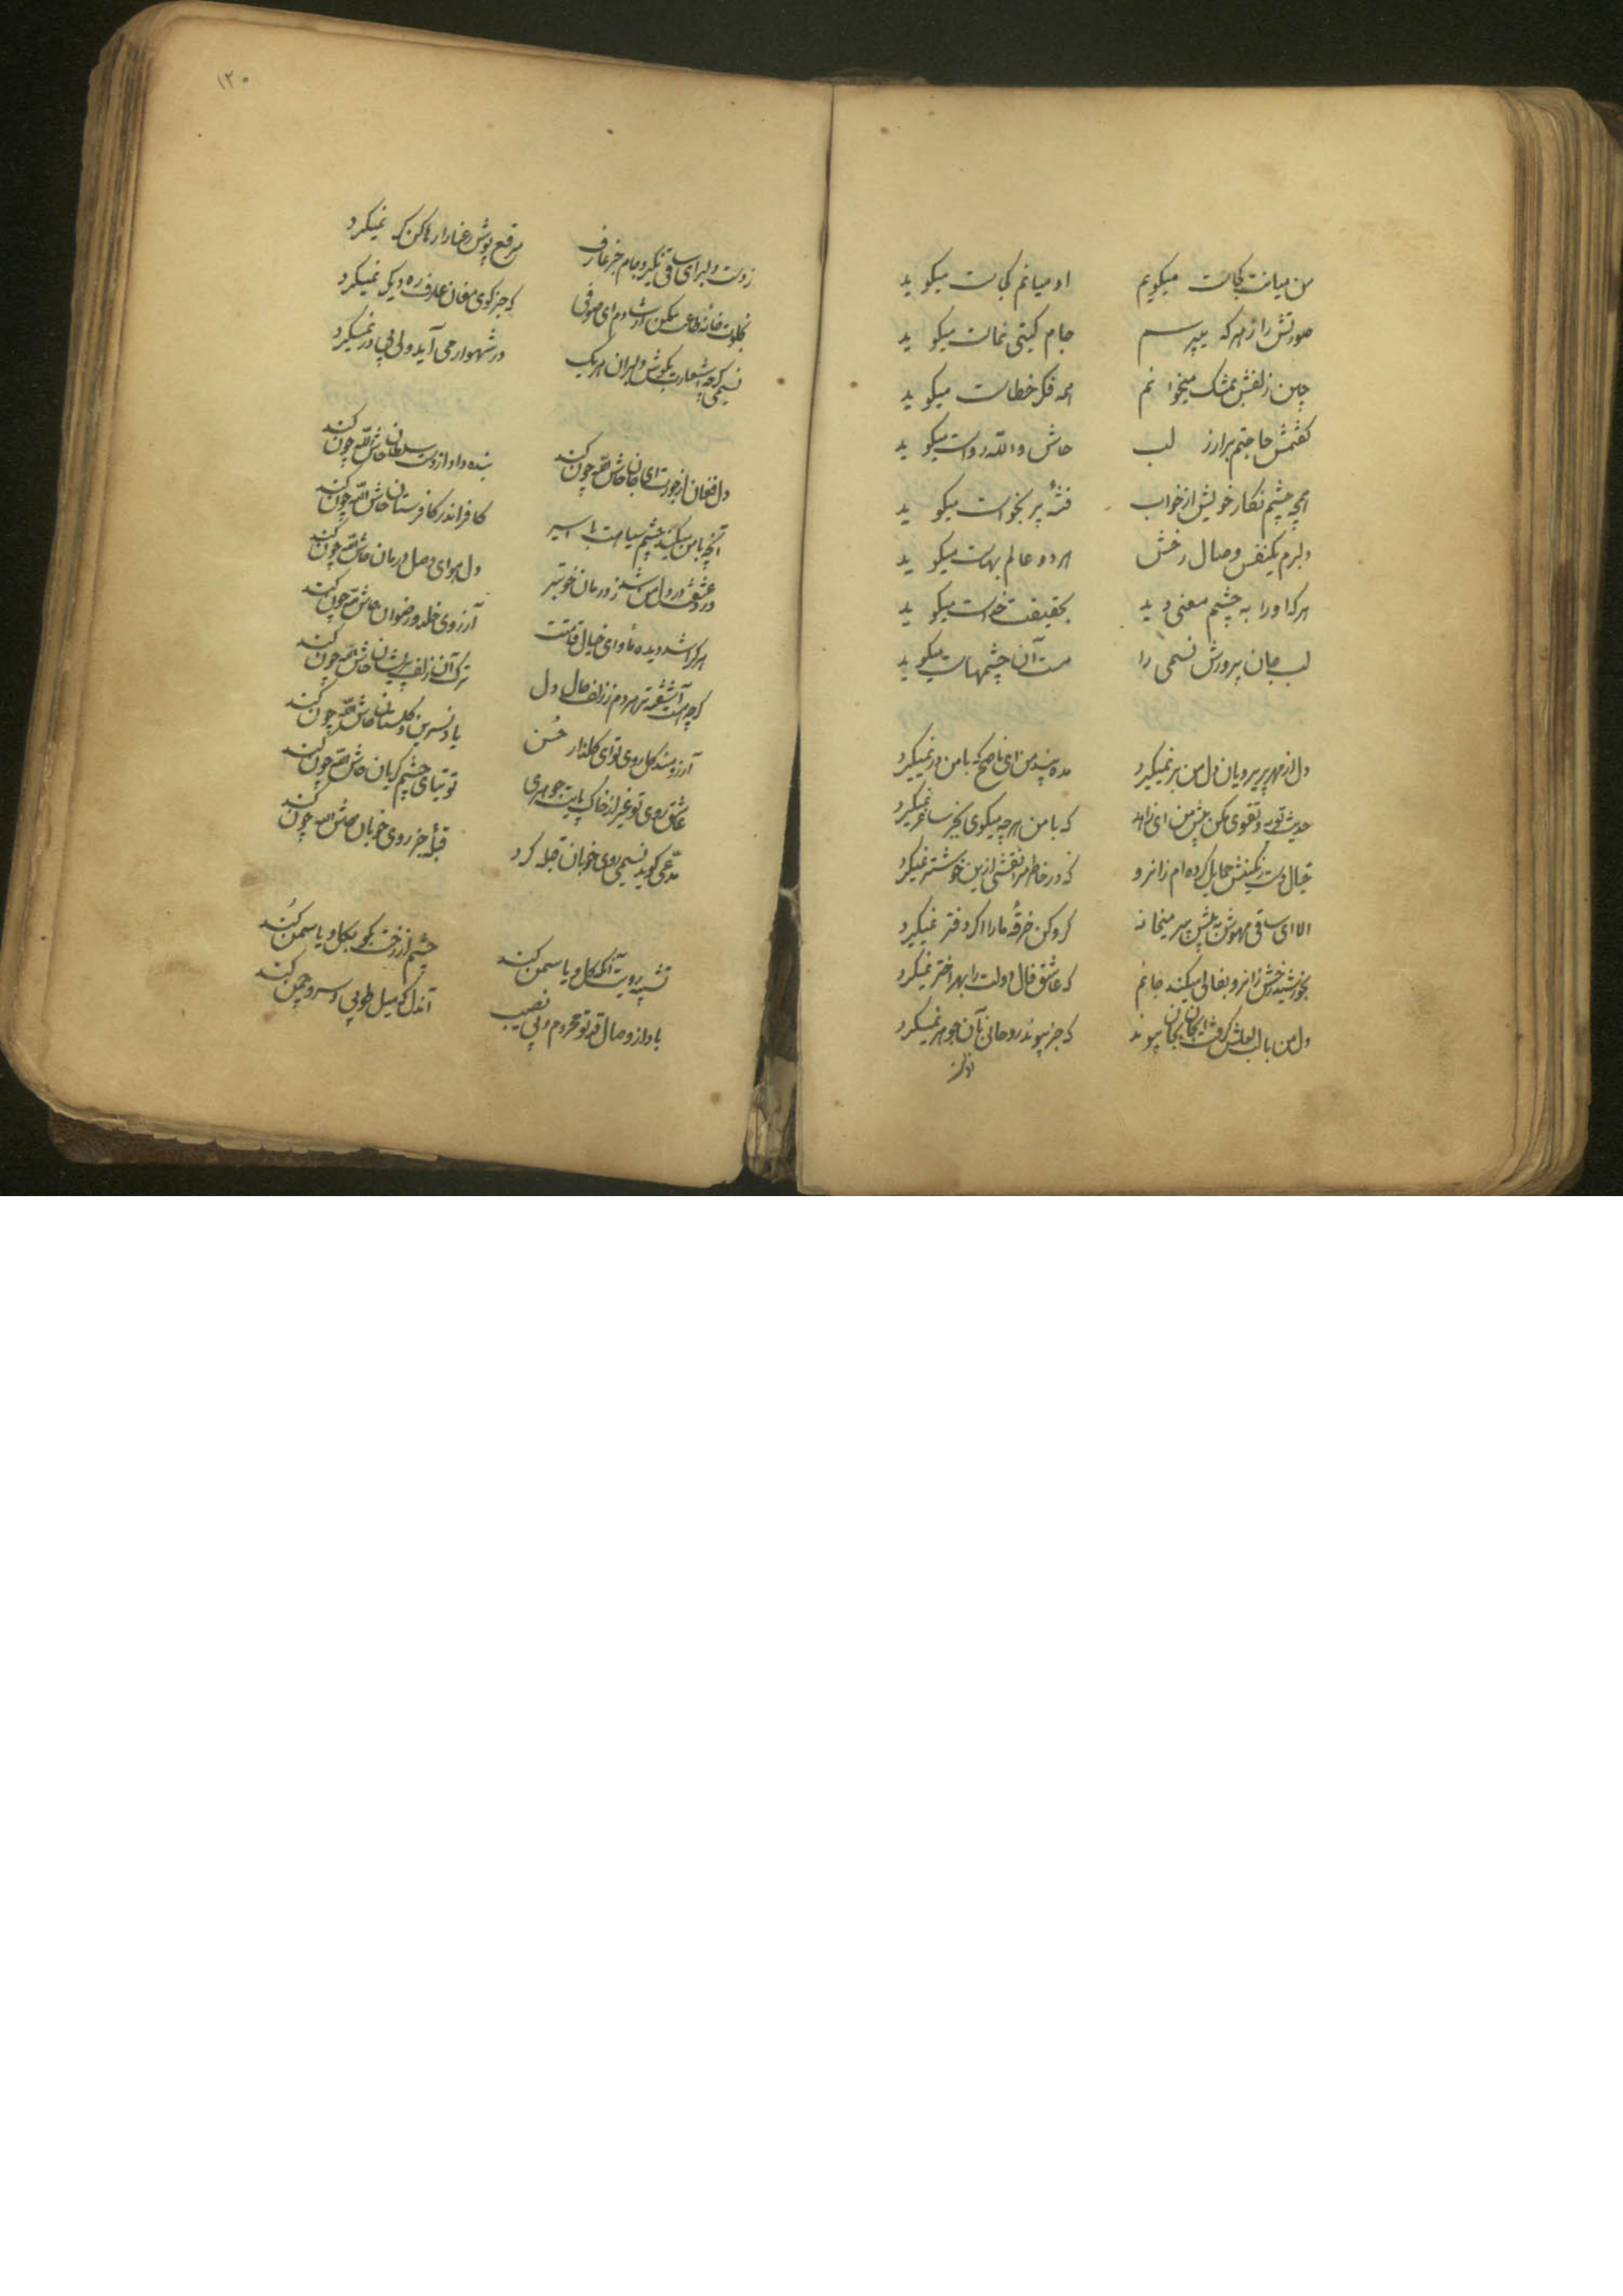 من میانت کجاست میگویم او میانم کجاست میگوید
صورتش را ز هر که میپرسم جام گیتی نماست میگوید
چین زلفش بمشک میخوانم همه فکر خطاست میگوید
گفتمش حاجتم برآر ز لب حاش والله رواست میگوید
همچو چشم نگار خویش از خواب فتنه بر نخواست میگوید
دلبرم یکنفس وصال رخش هر دو عالم بهاست میگوید
هرکه او را به چشم معنی دید بحقیقت خداست میگوید
لب جان پرورش نسیمی را مست آن چشمهاست میگوید
دل از مهر پریرویان دل من بر نمیگیرد مده پندم ای ناصح که با من در نمیگیرد
حدیث توبه و تقوی مکن پیش من ای زاهد که با من هرچه میگوی بجز ساغر نمیگیرد
خیال دست رنگینش حمایل کرده ام زانرو که در خاطر مرا نقشی ازین خوشتر نمیگیرد
الا ای ساقی مهوش به پیش پیر میخانه گرو کن خرقه ما را اگر دفتر نمیگیرد
بخورشید رخش زانرو تفالی میکند جانم که عاشق فال دولت را بهر اختر نمیگیرد
دل من با لب لعلش گرفت از جان بجان پیوند که جز پیوند روحانی بآن جوهر نمیگیرد
زدست
۱۲۰
زدست دلبر ای ساقی نگیرد جام جز عارف مرقع پوش رعنا را رها کن گر نمیگیرد
بخلوت خانه طاعت مکن ارشادم ای صوفی که جز کوی مغان عارف ره دیگر نمیگیرد
نسیمی گرچه اشعارت بگوش دلبران هر یک در شهوار می آید ولی بی در نمیگیرد
دل فغان از جورت ای جان حاش لله چون کند بنده داد از دست سلطان حاش لله چون کند
آنچه با من میکند چشم سیاهت با اسیر کافر اندر کافرستان حاش لله چون کند
درد عشقت در دل من شد ز درمان خوبتر دل هوای وصل درمان حاش لله چون کند
هر کرا شد دیده مأوای خیال قامتت آرزوی خلد و رضوان حاش لله چون کند
گرچه هست آشفته تر هر دم ز زلفت حال دل ترک آن زلف پریشان حاش لله چون کند
آرزومند گل روی تو ای گلزار حسن یاد نسرین و گلستان حاش لله چون کند
عاشق روی تو غیر از خاک پایت جوهری توتیای چشم گریان حاش لله چون کند
مدعی گوید نسیمی روی خوبان قبله کرد قبله جز روی خوبان حاش لله چون کند
تشبیه رویت آنکه بگل و یاسمن کند چشم از رخت بگو بگل و یاسمن کند
بادا ز وصال قد تو محروم و بی نصیب آندل که میل طوبی و سرو چمن کند